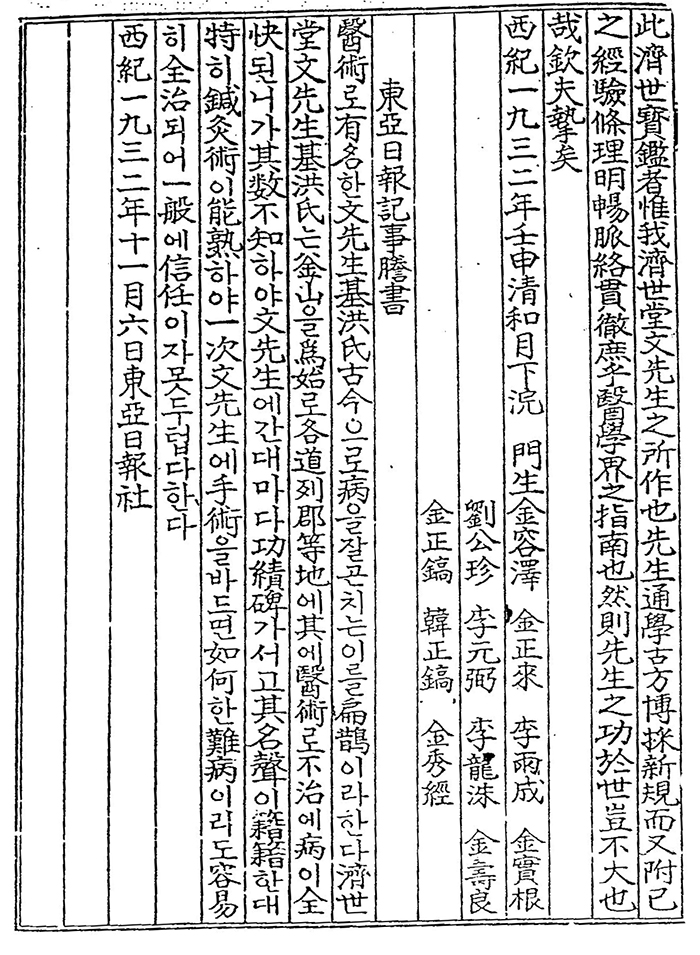 此濟世寶鑑者惟我濟世堂文先生之所作也先生通學古方博採新規而又附已
之經驗條理明暢脈絡貫徹庶乎醫學界之指南也然則先生之功於世豈不大也
哉欽夫摯矣
西紀一九三二年壬申清和月下浣 門生金容澤 金正來 李雨成 金實根
劉公珍 李元弼 李龍洙 金壽良
金正鎬 韓正鎬 金秀經
東亞日報記事謄書
醫術로有名한文先生基洪氏古今으로病을잘곤치는이를扁鵲이라한다濟世
堂文先生基洪氏는釜山을爲始로各道列郡等地에其에醫術로不治에病이全
快된니가其数不知하야文先生에간대마다功績碑가서고其名聲이籍籍한대
特히鍼灸術이能熟하야一次文先生에手術을바드면如何한難病이리도容易
히全治되어一般에信任이자못두럽다한다
西紀一九三二年十一月六日東亞日報社